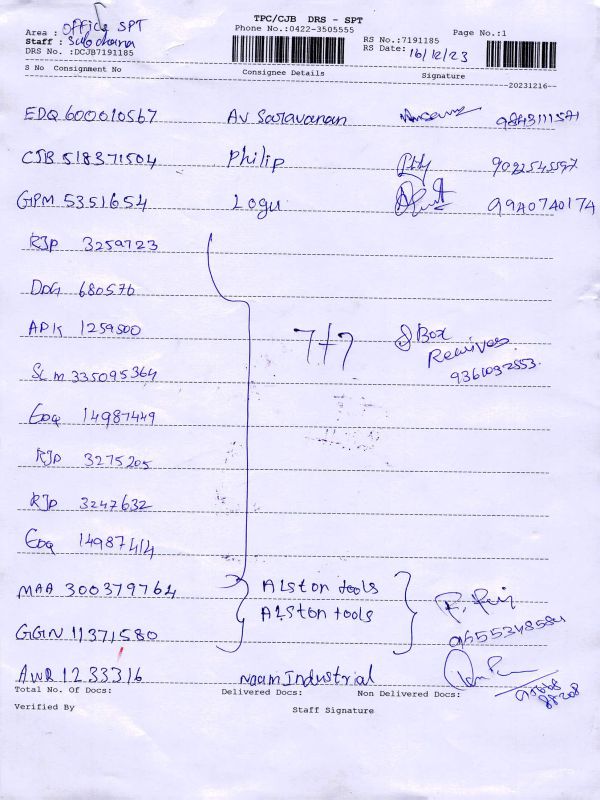 TPC/CJB DRS - SPT
Phone No.:0422-3505555
Page No.:1
Area : Office SPT
Staff :
DRS No :DCJB7191185
RS No.:7191185
RS Date: 16/12/23
S No Consignment No Consignee Details Signature
20231216
EDQ 600010567 AV Saravanan
CJB 518371504 Philip 9022545597
GPM 5351654 Logu 99A0740174
RJP 3259723
DDG 680576
APK 1259500
7+7 Box
Received
SLM 335095364 9361032553.
EDQ 14987449
RJD 3275205
RJD 3247632
EDQ 14987414
MAA 300379764 Alston tools
Alston tools
GGN 11371580 9655348584
AWR 1233316 Naam Industrial
Total No. Of Docs: Delivered Docs: Non Delivered Docs:
Verified By Staff Signature